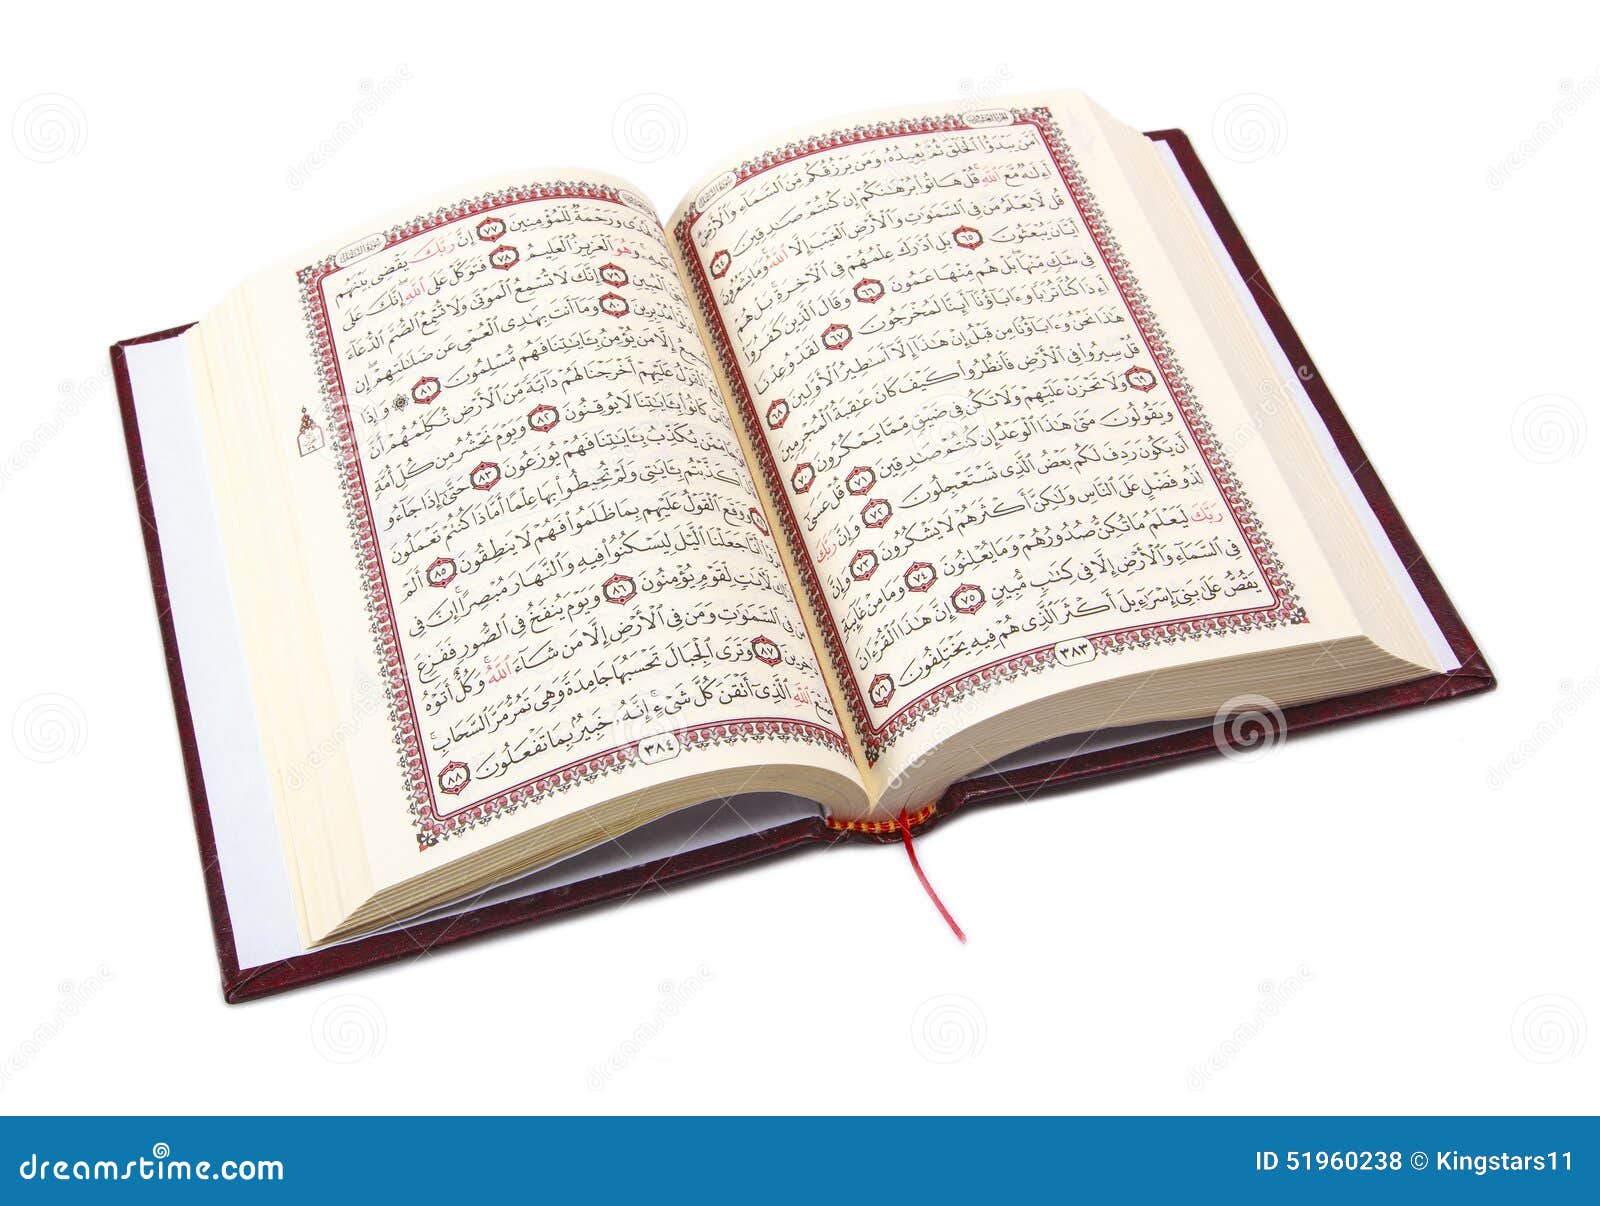 سورة النمل
الجزء العشرون
أَمَّن يَبْدَؤُا۟ ٱلْخَلْقَ ثُمَّ يُعِيدُهُۥ وَمَن يَرْزُقُكُم مِّنَ ٱلسَّمَآءِ وَٱلْأَرْضِ
أَءِلَٰهٌ مَّعَ ٱللَّهِ قُلْ هَاتُوا۟ بُرْهَٰنَكُمْ إِن كُنتُمْ صَٰدِقِينَ ٦٤
قُل لَّا يَعْلَمُ مَن فِى ٱلسَّمَٰوَٰتِ وَٱلْأَرْضِ ٱلْغَيْبَ إِلَّا ٱللَّهُ وَمَا يَشْعُرُونَ
أَيَّانَ يُبْعَثُونَ ٦٥ بَلِ ٱدَّٰرَكَ عِلْمُهُمْ فِى ٱلْءَاخِرَةِ بَلْ هُمْ
فِى شَكٍّ مِّنْهَا بَلْ هُم مِّنْهَا عَمُونَ ٦٦ وَقَالَ ٱلَّذِينَ كَفَرُوٓا۟
أَءِذَا كُنَّا تُرَٰبًا وَءَابَآؤُنَآ أَئِنَّا لَمُخْرَجُونَ ٦٧ لَقَدْ وُعِدْنَا
هَٰذَا نَحْنُ وَءَابَآؤُنَا مِن قَبْلُ إِنْ هَٰذَآ إِلَّآ أَسَٰطِيرُ ٱلْأَوَّلِينَ ٦٨
قُلْ سِيرُوا۟ فِى ٱلْأَرْضِ فَٱنظُرُوا۟ كَيْفَ كَانَ عَٰقِبَةُ ٱلْمُجْرِمِينَ
٦٩ وَلَا تَحْزَنْ عَلَيْهِمْ وَلَا تَكُن فِى ضَيْقٍ مِّمَّا يَمْكُرُونَ ٧٠
وَيَقُولُونَ مَتَىٰ هَٰذَا ٱلْوَعْدُ إِن كُنتُمْ صَٰدِقِينَ ٧١ قُلْ عَسَىٰٓ
أَن يَكُونَ رَدِفَ لَكُم بَعْضُ ٱلَّذِى تَسْتَعْجِلُونَ ٧٢ وَإِنَّ رَبَّكَ
لَذُو فَضْلٍ عَلَى ٱلنَّاسِ وَلَٰكِنَّ أَكْثَرَهُمْ لَا يَشْكُرُونَ ٧٣ وَإِنَّ
رَبَّكَ لَيَعْلَمُ مَا تُكِنُّ صُدُورُهُمْ وَمَا يُعْلِنُونَ ٧٤ وَمَا مِنْ غَآئِبَةٍ
فِى ٱلسَّمَآءِ وَٱلْأَرْضِ إِلَّا فِى كِتَٰبٍ مُّبِينٍ ٧٥ إِنَّ هَٰذَا ٱلْقُرْءَانَ
يَقُصُّ عَلَىٰ بَنِىٓ إِسْرَٰٓءِيلَ أَكْثَرَ ٱلَّذِى هُمْ فِيهِ يَخْتَلِفُونَ ٧٦
٣٨٣
سورة النمل
وَرَحْمَةٌ لِّلْمُؤْمِنِينَ ٧٧ إِنَّ رَبَّكَ يَقْضِى بَيْنَهُم
وَهُوَ ٱلْعَزِيزُ ٱلْعَلِيمُ ٧٨ فَتَوَكَّلْ عَلَى ٱللَّهِ إِنَّكَ عَلَى
ٱلْمُبِينِ ٧٩ إِنَّكَ لَا تُسْمِعُ ٱلْمَوْتَىٰ وَلَا تُسْمِعُ ٱلصُّمَّ ٱلدُّعَآءَ
مُدْبِرِينَ ٨٠ وَمَآ أَنتَ بِهَٰدِى ٱلْعُمْىِ عَن ضَلَٰلَتِهِمْ إِن
إِلَّا مَن يُؤْمِنُ بِـَٔايَٰتِنَا فَهُم مُّسْلِمُونَ ٨١ وَإِذَا
ٱلْقَوْلُ عَلَيْهِمْ أَخْرَجْنَا لَهُمْ دَآبَّةً مِّنَ ٱلْأَرْضِ تُكَلِّمُهُمْ أَنَّ
كَانُوا۟ بِـَٔايَٰتِنَا لَا يُوقِنُونَ ٨٢ وَيَوْمَ نَحْشُرُ مِن كُلِّ أُمَّةٍ
مِّمَّن يُكَذِّبُ بِـَٔايَٰتِنَا فَهُمْ يُوزَعُونَ ٨٣ حَتَّىٰٓ إِذَا جَآءُو
أَكَذَّبْتُم بِـَٔايَٰتِى وَلَمْ تُحِيطُوا۟ بِهَا عِلْمًا أَمَّاذَا كُنتُمْ تَعْمَلُونَ
وَوَقَعَ ٱلْقَوْلُ عَلَيْهِم بِمَا ظَلَمُوا۟ فَهُمْ لَا يَنطِقُونَ ٨٥ أَلَمْ
أَنَّا جَعَلْنَا ٱلَّيْلَ لِيَسْكُنُوا۟ فِيهِ وَٱلنَّهَارَ مُبْصِرًا إِنَّ فِى
لَءَايَٰتٍ لِّقَوْمٍ يُؤْمِنُونَ ٨٦ وَيَوْمَ يُنفَخُ فِى ٱلصُّورِ فَفَزِعَ
فِى ٱلسَّمَٰوَٰتِ وَمَن فِى ٱلْأَرْضِ إِلَّا مَن شَآءَ ٱللَّهُ وَكُلٌّ أَتَوْهُ
٨٧ وَتَرَى ٱلْجِبَالَ تَحْسَبُهَا جَامِدَةً وَهِىَ تَمُرُّ مَرَّ ٱلسَّحَابِ
صُنْعَ ٱللَّهِ ٱلَّذِىٓ أَتْقَنَ كُلَّ شَىْءٍ إِنَّهُۥ خَبِيرٌۢ بِمَا تَفْعَلُونَ ٨٨
٣٨٤
dreamstime.com
ID 51960238 © Kingstars11